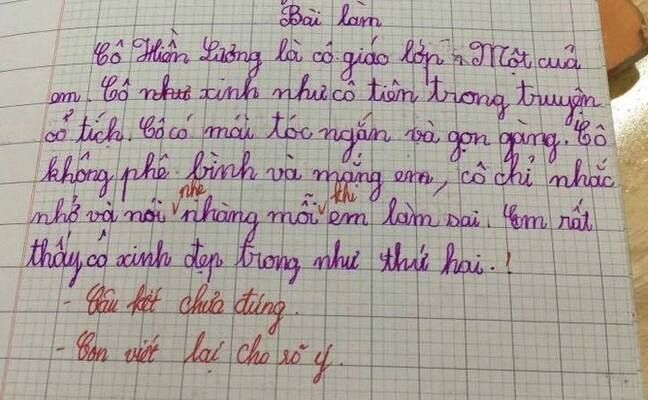 Bài làm
Cô Hiền Lương là cô giáo lớp Một cuả
em. Cô như xinh như cô tiên trong truyện
cổ tích. Cô có mái tóc ngắn và gọn gàng. Cô
không phê bình và mắng em, cô chỉ nhắc
nhở và nói nhẹ nhàng mỗi khi em làm sai. Em rất
thấy cô xinh đẹp trong như thứ hai.!
- Câu kết chưa đúng.
- Con viết lại cho rõ ý.